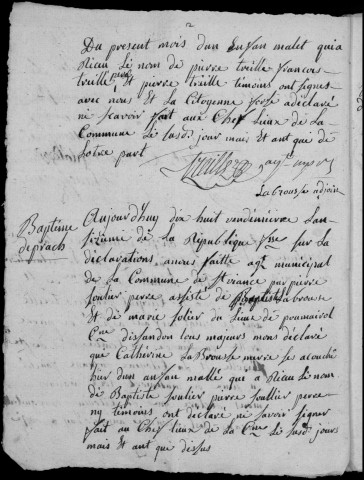 2
Du present mois d'un enfan malet qui a
Recu le nom de pierre treille francois
treille pere Et pierre treille timoins ont signes
avec nous Et la Citoyenne serve a declaré
ne scavoir fait aux Chef Lieux de La
Commune Le susd. jour mais Et ant que de
Lotre part
Labrousse adjoin
Bapteme
deprach
Aujourd'huy dix huit vendemierre Lan
sizieme de la Republique sur la
declarations a nous faitte agt municipal
de La Commune de St vrance par pierre
soulier perre assiste de Baptiste La brousse
Et de marie solier du Lieux de poumairol
Cne dissandon tous majeurs mons declaré
que Catherine La Brousse merre se acouché
hier dun anfan mallé que a Recu Le nom
de Baptiste soulier pierre soullier perre
ny timouis ont declaré ne savoir signer
fait au Chef Lieux de La Cne Le susd. jours
mais Et ant que dessus